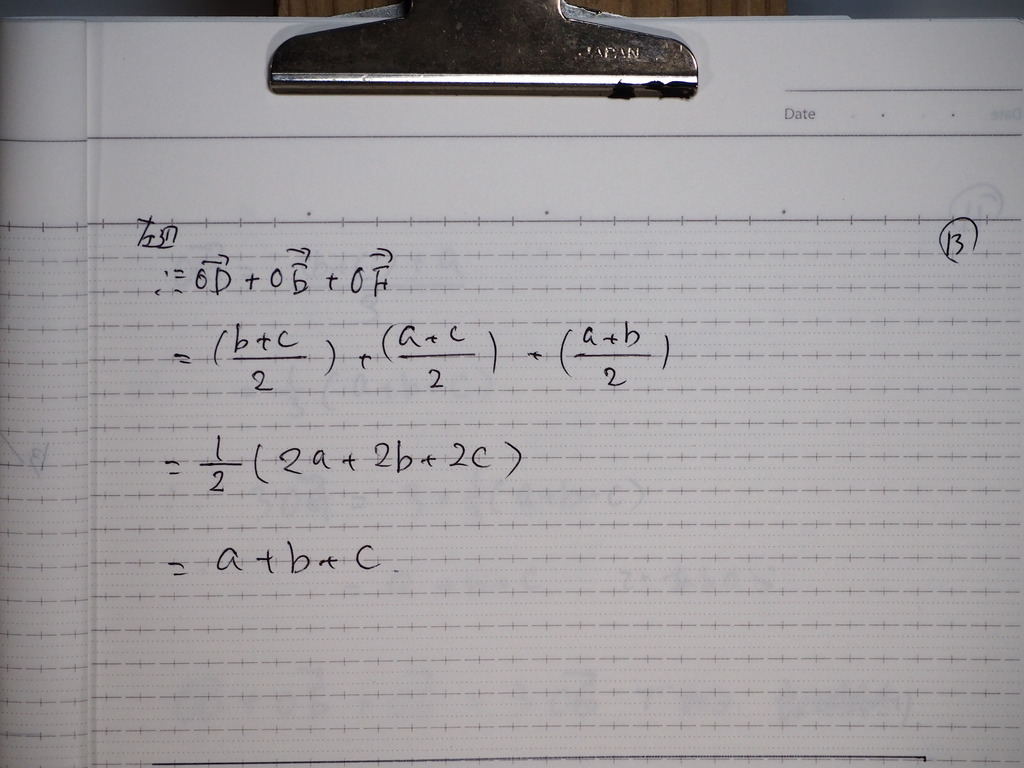 JAPAN
Date
⑬
∴= \vec{OD} + \vec{OE} + \vec{OF}
= (\frac{b+c}{2}) + (\frac{a+c}{2}) + (\frac{a+b}{2})
= \frac{1}{2} (2a + 2b + 2c)
= a + b + c.